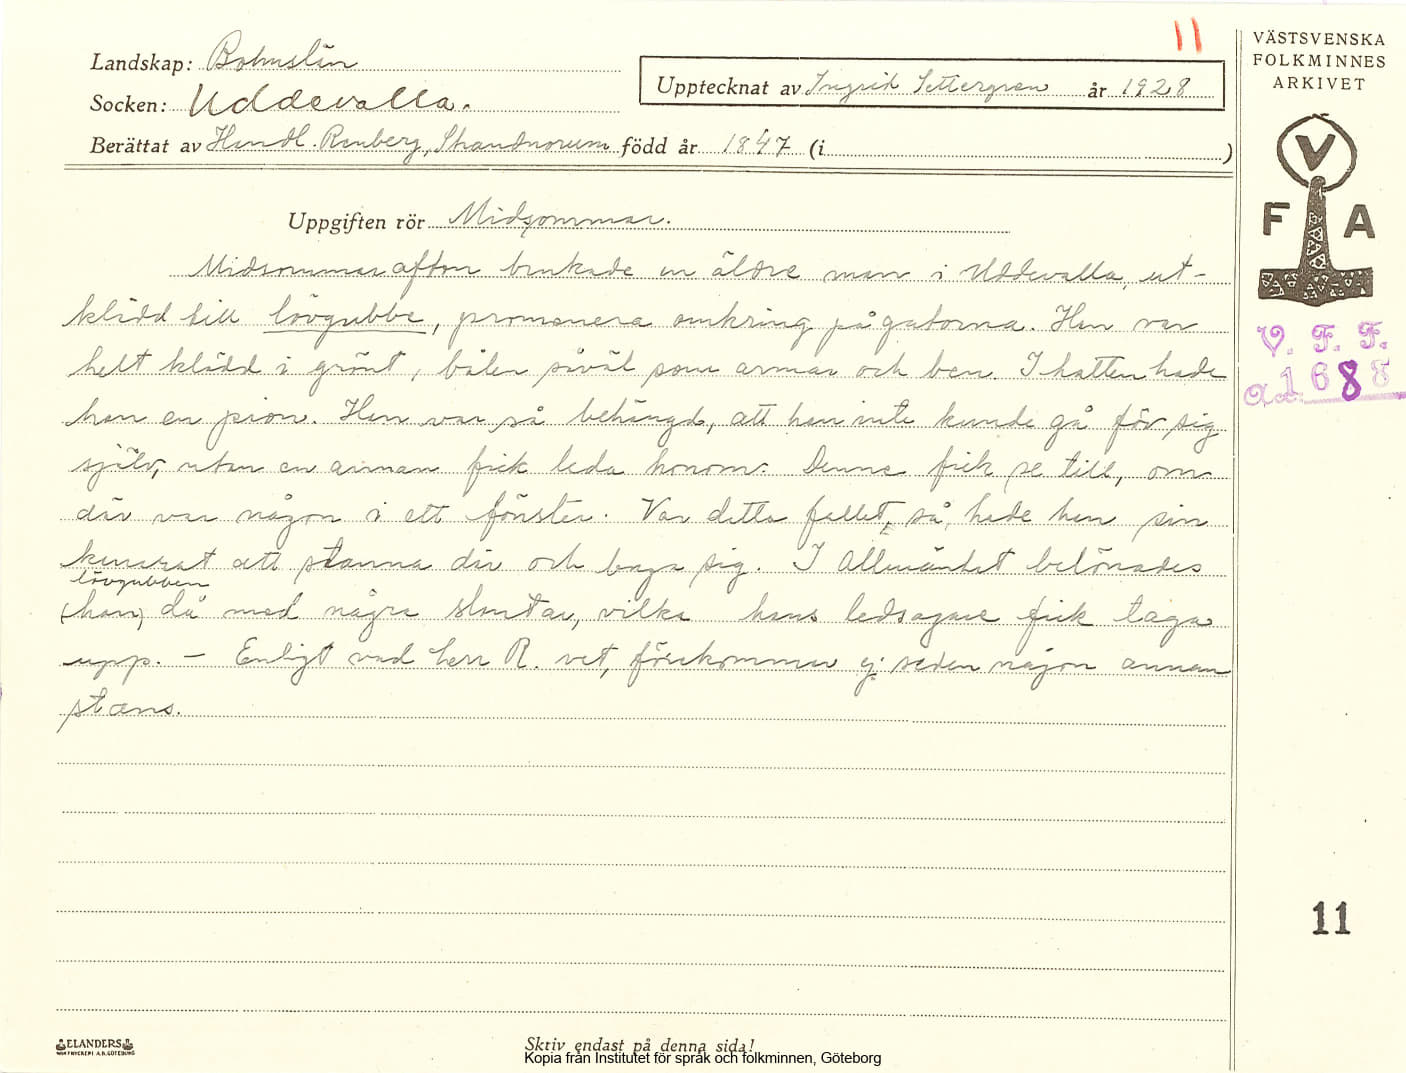 11
VÄSTSVENSKA
FOLKMINNES
ARKIVET
Landskap: Bohuslän
Socken: Uddevalla.
Upptecknat av Ingrid Settergren år 1928
Berättat av Handl. Renberg, Strandnorum född år 1847 (i )
V
F A
V. F. F.
1688
Uppgiften rör Midsommar.
Midsommarafton brukade en äldre man i Uddevalla, ut-
klädd till lövgubbe, promenera omkring på gatorna. Han var
helt klädd i grönt, bålen såväl som armar och ben. I hatten hade
han en pion. Han var så behängd, att han inte kunde gå för sig
själv, utan en annan fick leda honom. Denne fick se till, om
där var någon i ett fönster. Var detta fallet, så hade han sin
kamrat att stanna där och buga sig. I Allmänhet belönades
lövgubben
(han) då med några slantar, vilka hans ledsagare fick taga
upp. – Enligt vad herr R. vet, förekommer ej seden någon annan
stans.
11
ELANDERS
Skriv endast på denna sida!
Kopia från Institutet för språk och folkminnen, Göteborg